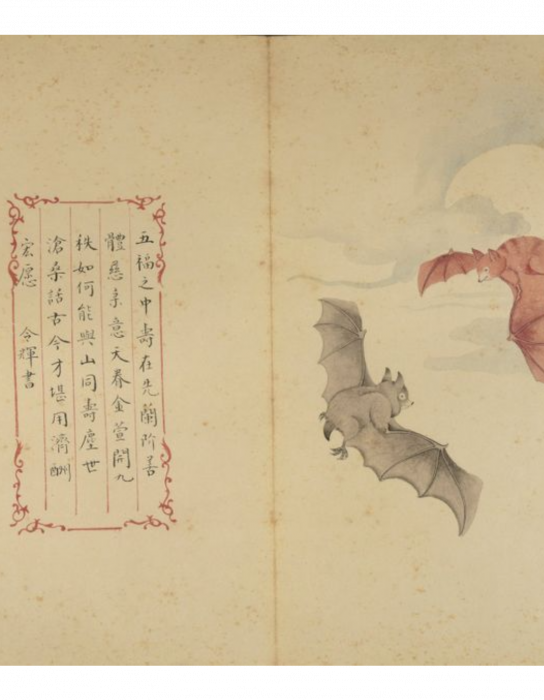 五福之中壽在先蘭阶善
體慈亲意天养金萱開九
秩如何能與山同壽塵世
滄桑話古今才堪用濟酬
宏愿　令輝書